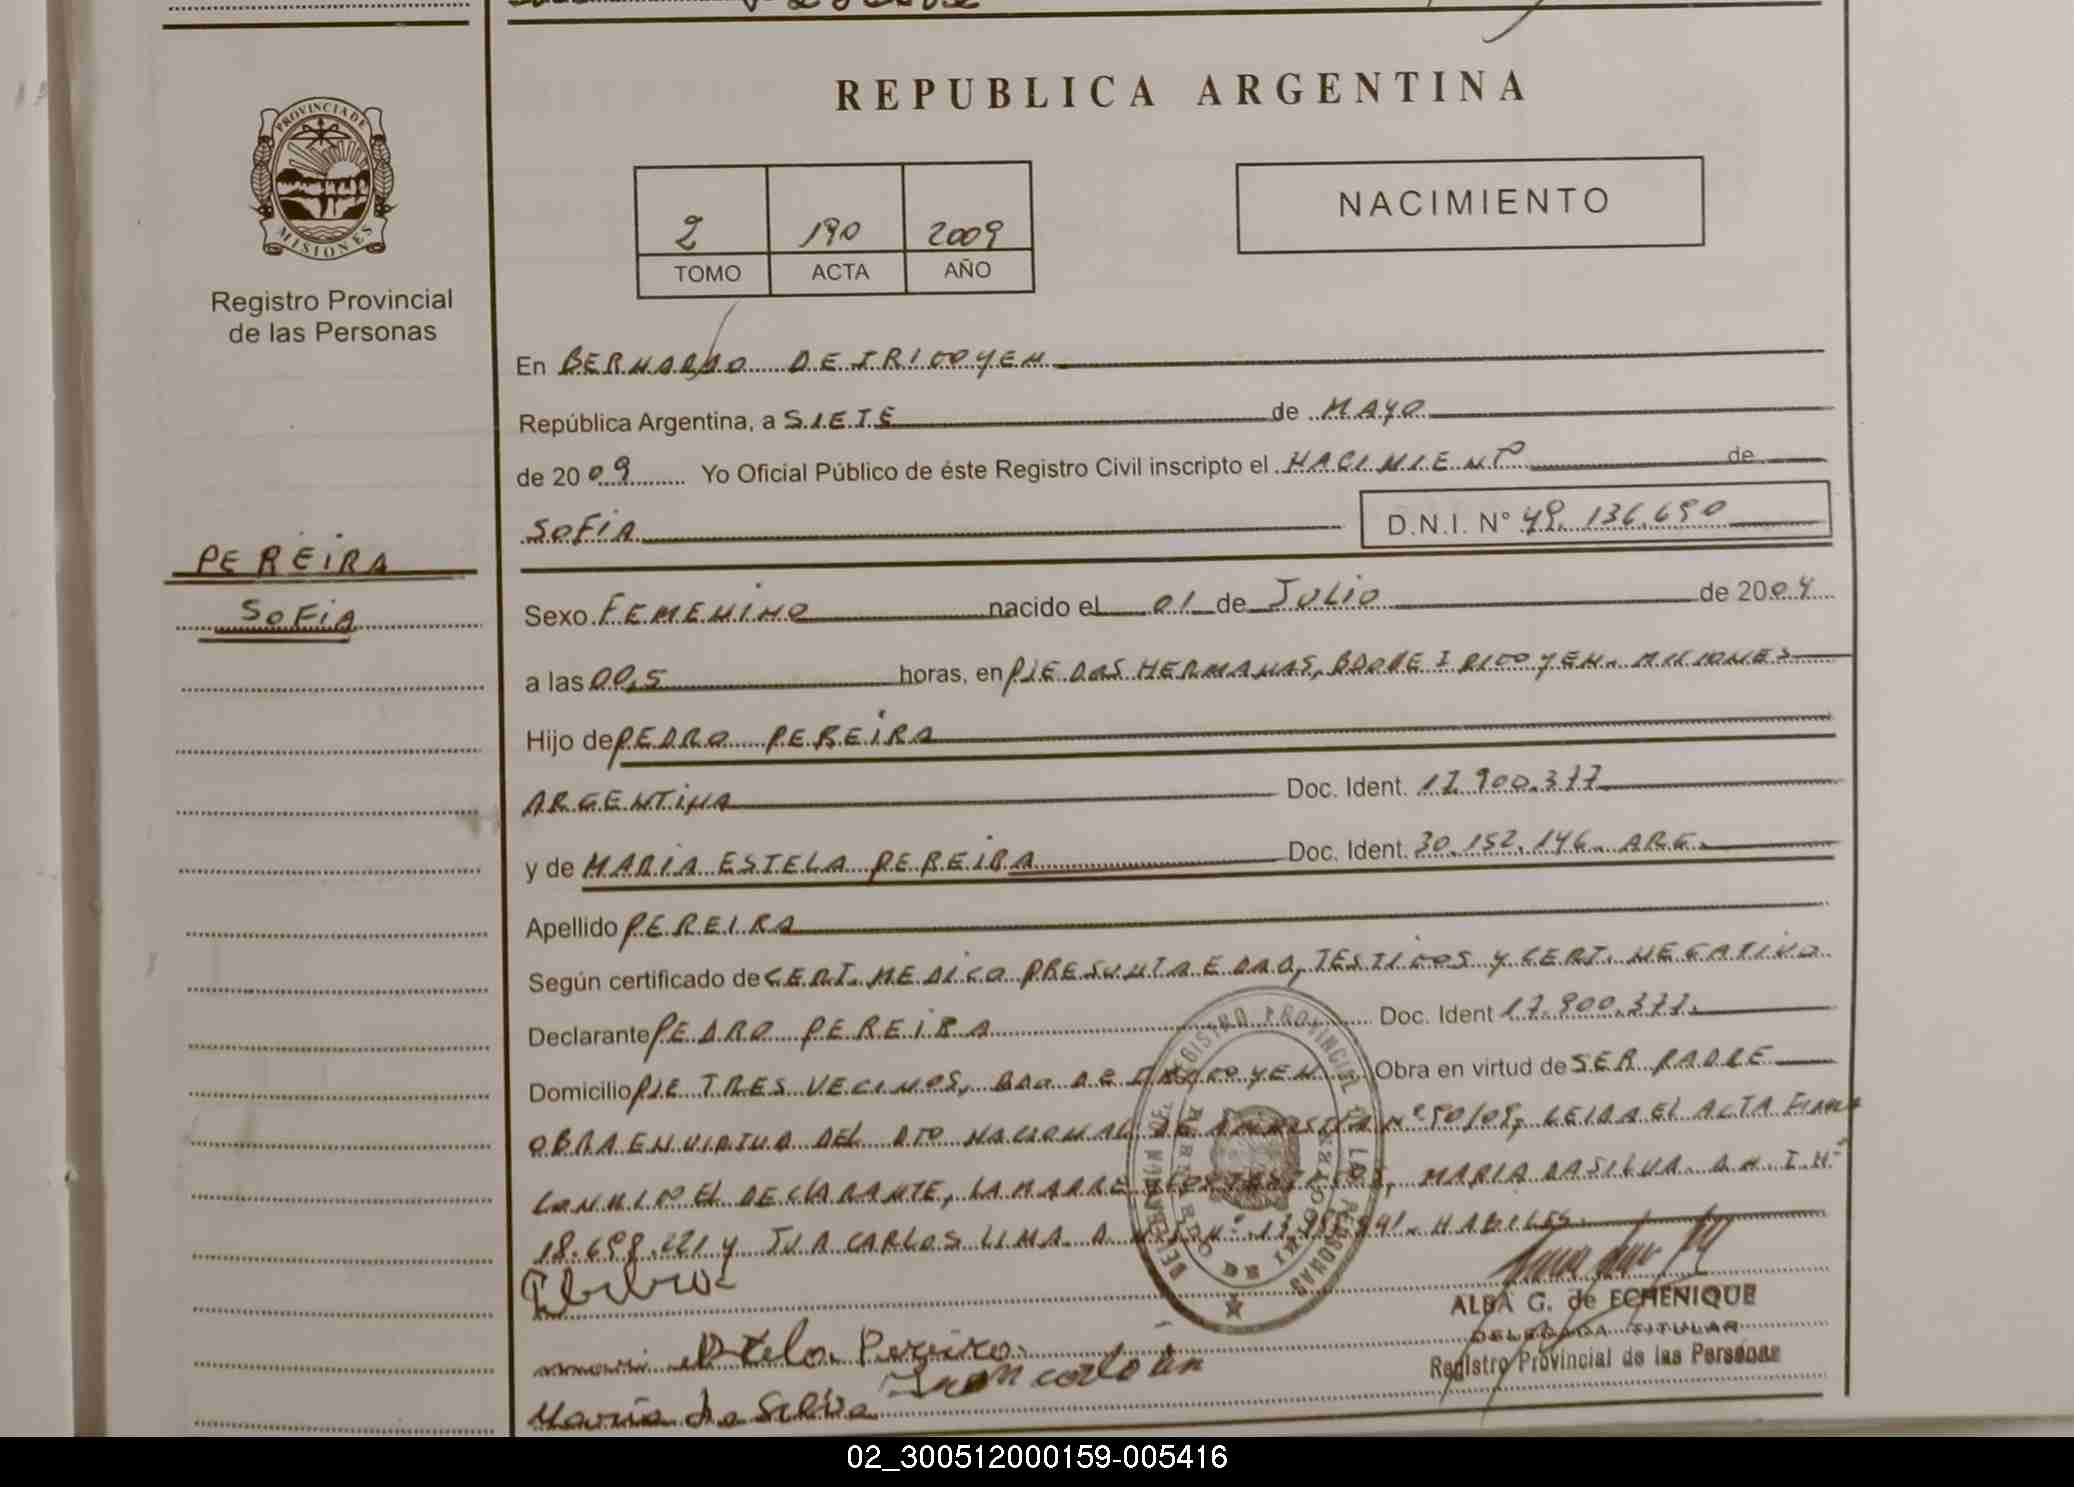 REPUBLICA ARGENTINA
PROVINCIA DE
MISIONES
Registro Provincial
de las Personas
NACIMIENTO
2 190 2009
TOMO ACTA AÑO
En BERNARDO DE IRIGOYEN
República Argentina, a SIETE de MAYO
de 2009 Yo Oficial Público de éste Registro Civil inscripto el NACIMIENTO de
SOFIA D.N.I. N° 49.136.690
PEREIRA
SOFIA
Sexo FEMENINO nacido el 01 de JULIO de 2004
a las 00,5 horas, en PJE DOS HERMANAS, BDO DE IRIGOYEN. MISIONES
Hijo de PEDRO PEREIRA
ARGENTINA Doc. Ident. 17.900.377
y de MARIA ESTELA PEREIRA Doc. Ident. 30.152.146 ARG.
Apellido PEREIRA
Según certificado de CERT. MEDICO PRESUNTA EDAD, TESTIGOS Y CERT. NEGATIVO
Declarante PEDRO PEREIRA Doc. Ident 17.900.377.
Domicilio PJE TRES VECINOS, BDO DE IRIGOYEN Obra en virtud de SER PADRE
OBRA EN VIRTUD DEL DTO NACIONAL DE N° 90/09, LEIDA EL ACTA FIRMA
CONMIGO EL DECLARANTE, LA MADRE Y LOS TESTIGOS, MARIA DA SILVA D.N.I.N°
18.698.221 Y JUA CARLOS LIMA D.N.I.N° HABILES
REGISTRO PROVINCIAL DE LAS PERSONAS
Maria Estela Pereira
Maria da Silva
Juan carlo
ALBA G. de ECHENIQUE
DELEGADA TITULAR
Registro Provincial de las Personas
02_300512000159-005416